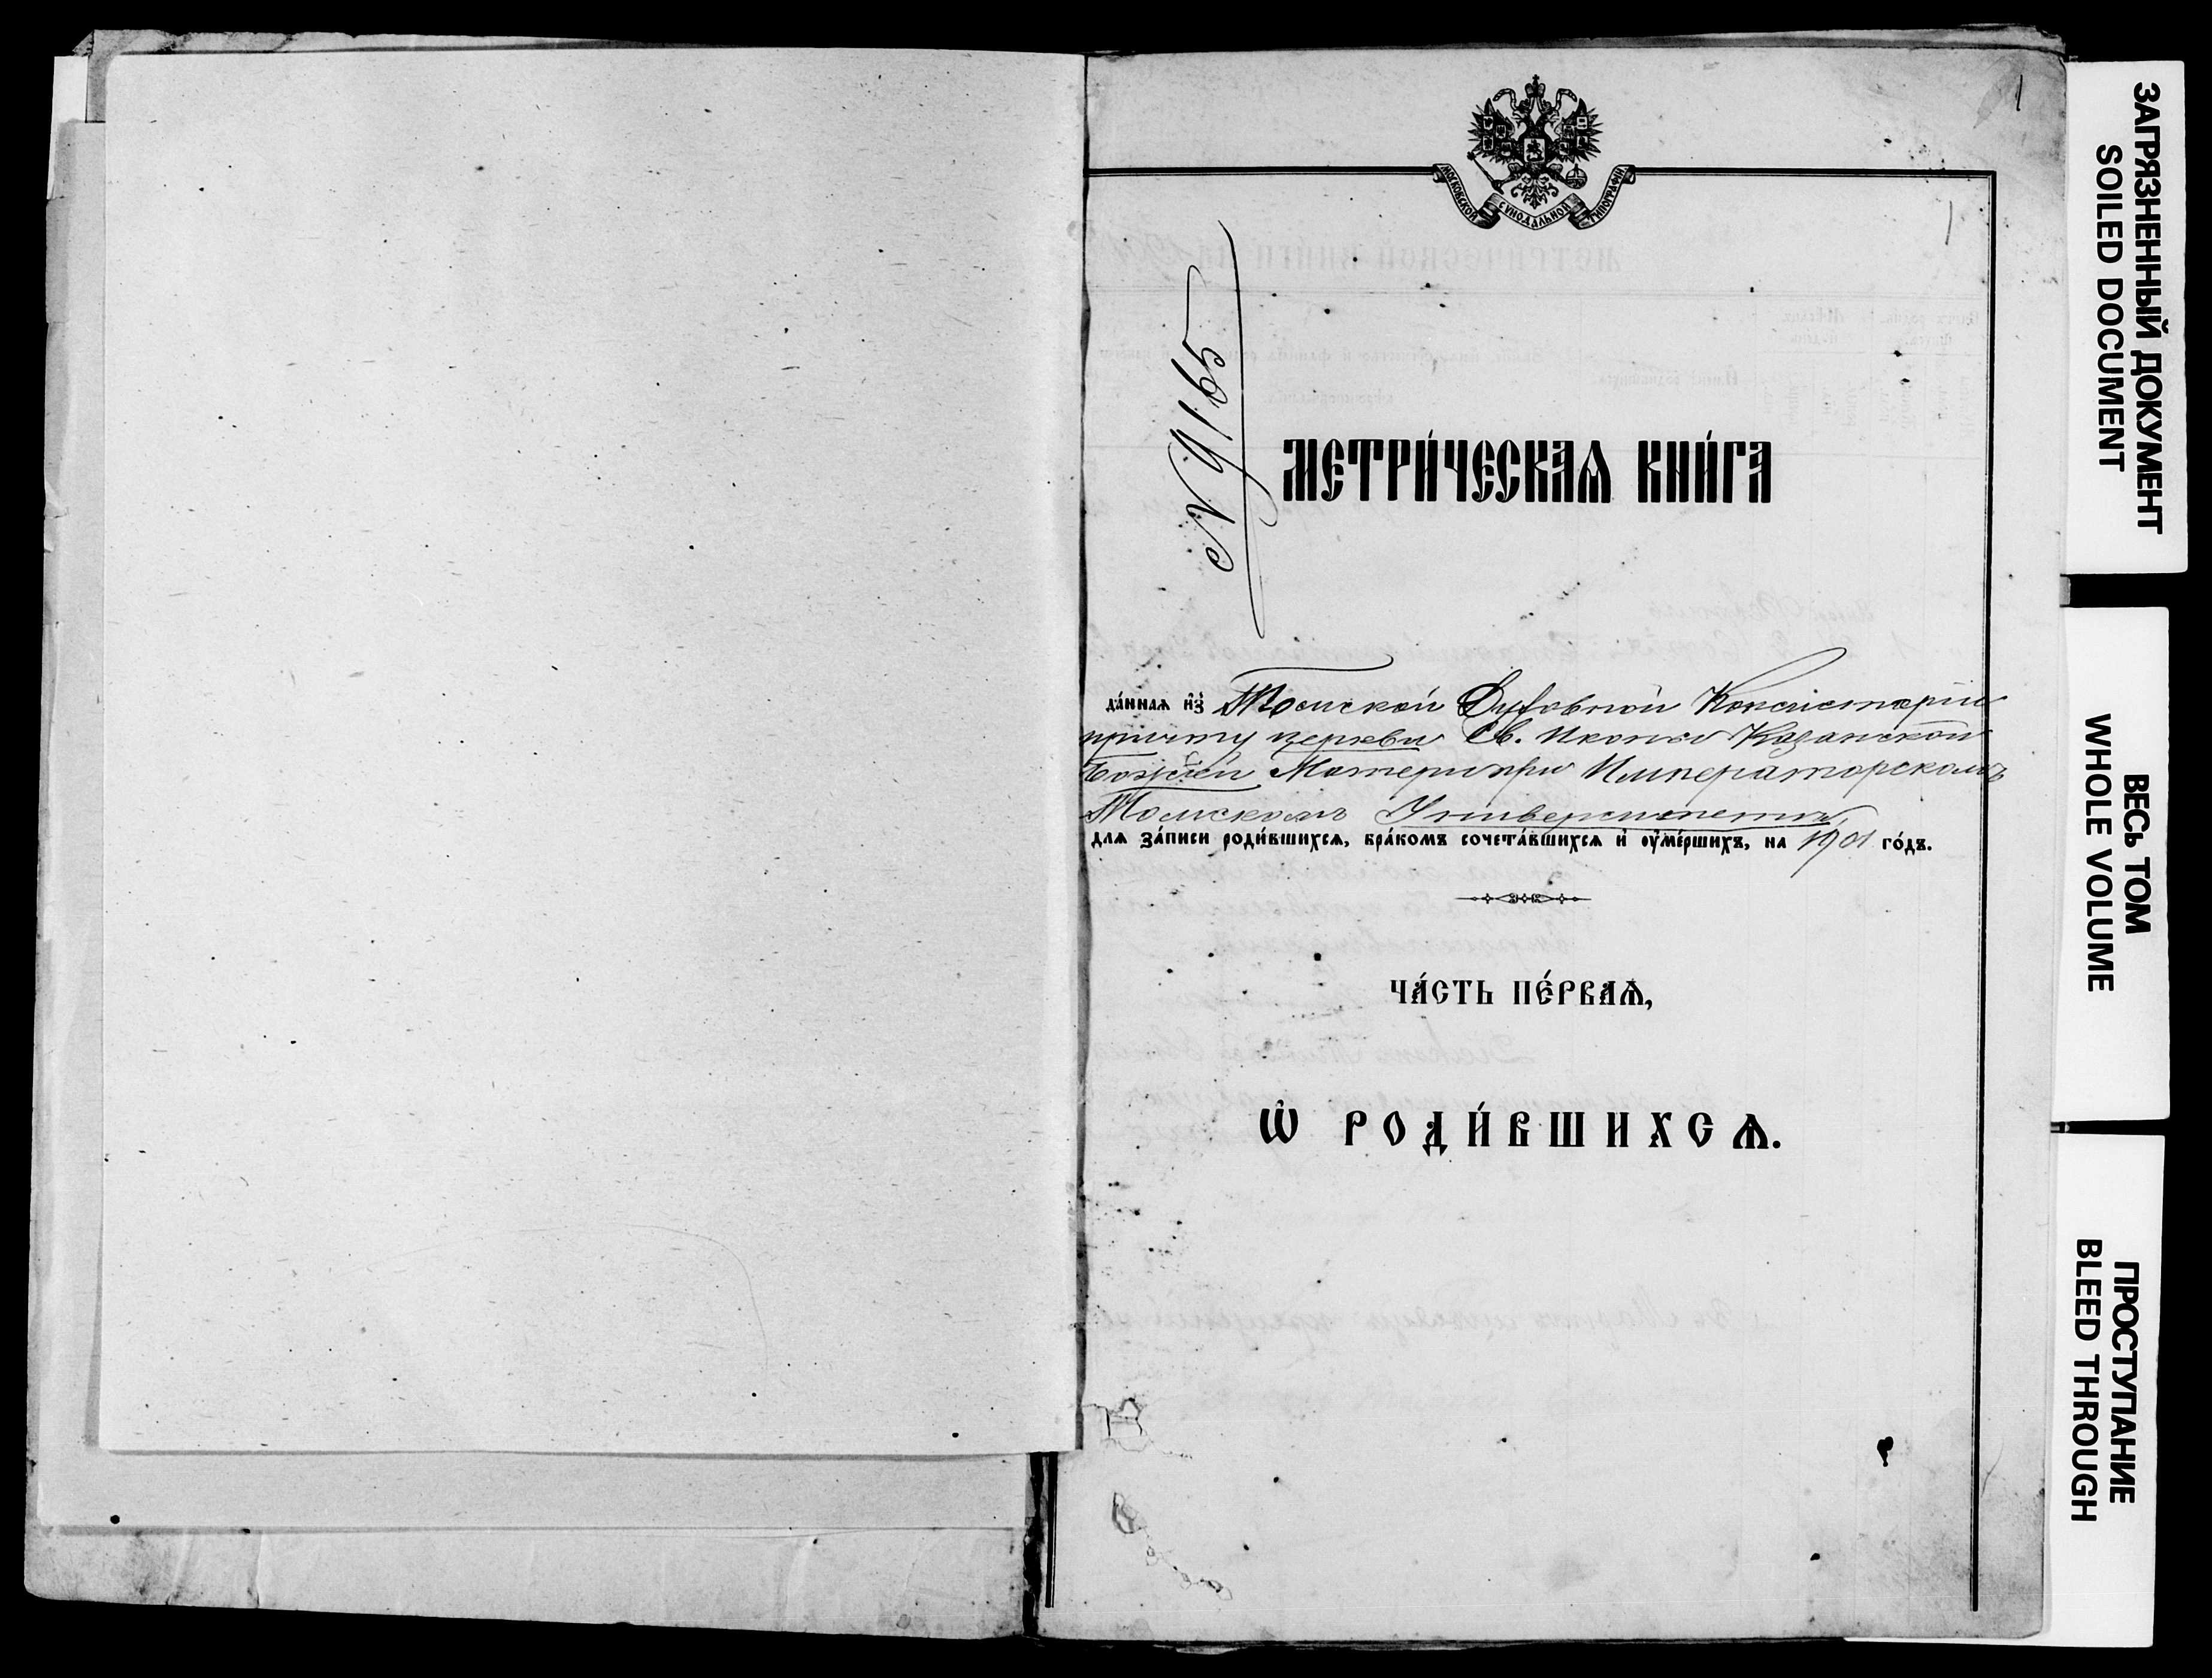 1
МОСКОВСКОЙ СѴНОДАЛЬНОЙ ТИПОГРАФІИ
1
МЕТРИ́ЧЕСКАѦ КНИ́ГА
да́ннаѧ и҆з̾ Томской Духовной Консисторіи
причту церкви Св. Иконы Казанской
Божіей Матери при Императорскомъ
Томскомъ Университетѣ
для за́писи роди́вшихсѧ, бра́комъ сочета́вшихсѧ и҆ ᲂу҆ме́ршихъ, на 1901 го́дъ.
ЧА́СТЬ ПЕ́РВАѦ,
Ѡ҆ РОДИ́ВШИХСѦ.
ЗАГРЯЗНЕННЫЙ ДОКУМЕНТ
SOILED DOCUMENT
ВЕСЬ ТОМ
WHOLE VOLUME
ПРОСТУПАНИЕ
BLEED THROUGH